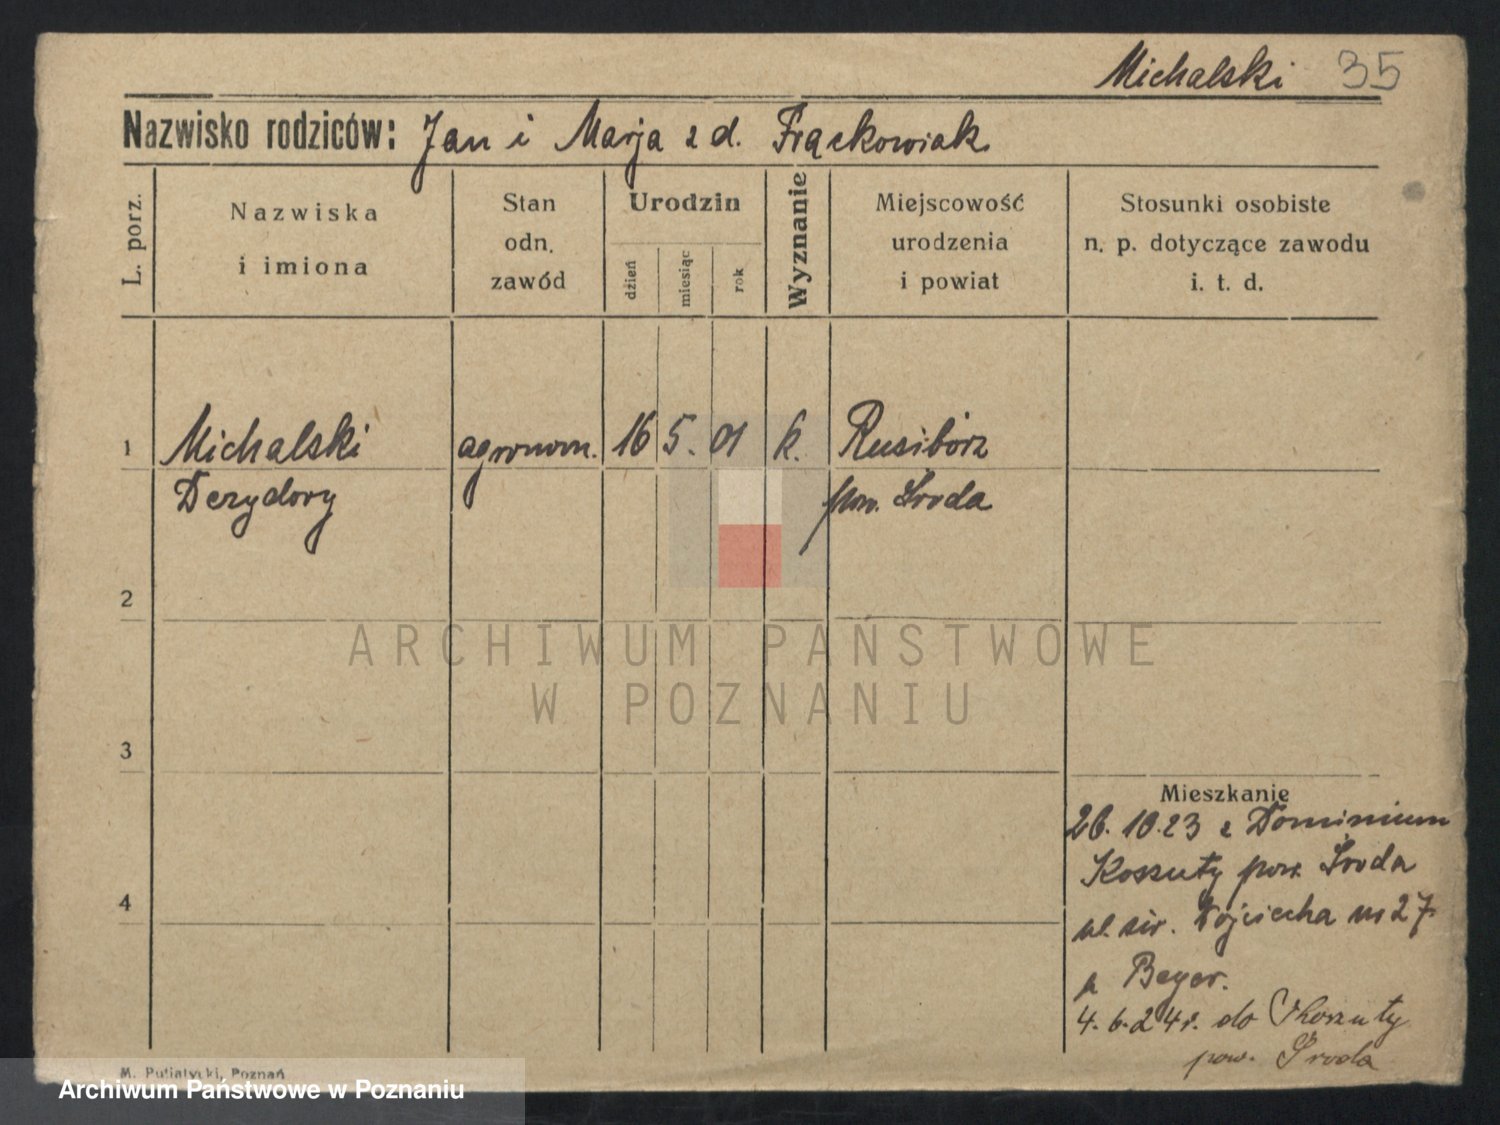 Michalski 35
Nazwisko rodziców: Jan i Marja z d. Frąckowiak
L. porz.
Nazwiska
i imiona
Stan
odn.
zawód
Urodzin
dzień
miesiąc
rok
Wyznanie
Miejscowość
urodzenia
i powiat
Stosunki osobiste
n. p. dotyczące zawodu
i. t. d.
1 Michalski agronom. 16 5. 01 k. Rusibórz
Dezydory pow. Środa
2
ARCHIWUM PAŃSTWOWE
W POZNANIU
3
Mieszkanie
26. 10. 23 z Dominium
Koszuty pow. Środa
4
ul. św. Wojciecha nr 27
p Beyer.
4. 6. 24 r. do Koszuty
pow. Środa
M. Putiatycki, Poznań
Archiwum Państwowe w Poznaniu